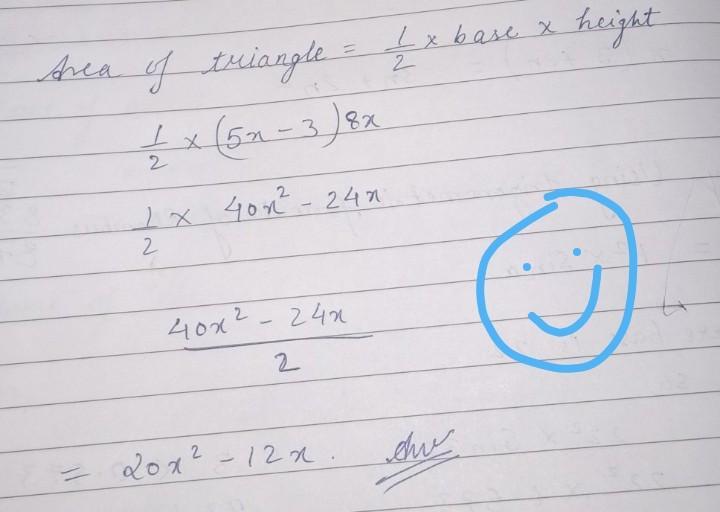 Area of triangle = 1/2 x base x height
1/2 x (5x - 3) 8x
1/2 x 40x² - 24x
40x² - 24x
2
= 20x² - 12x. Ans